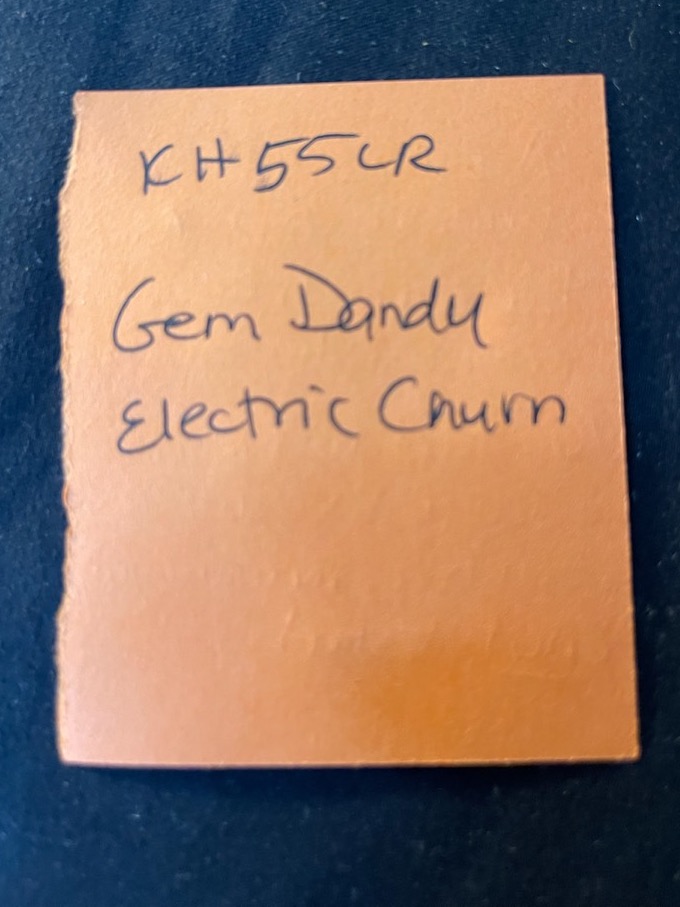 KH55LR
Gem Dandy
Electric Churn